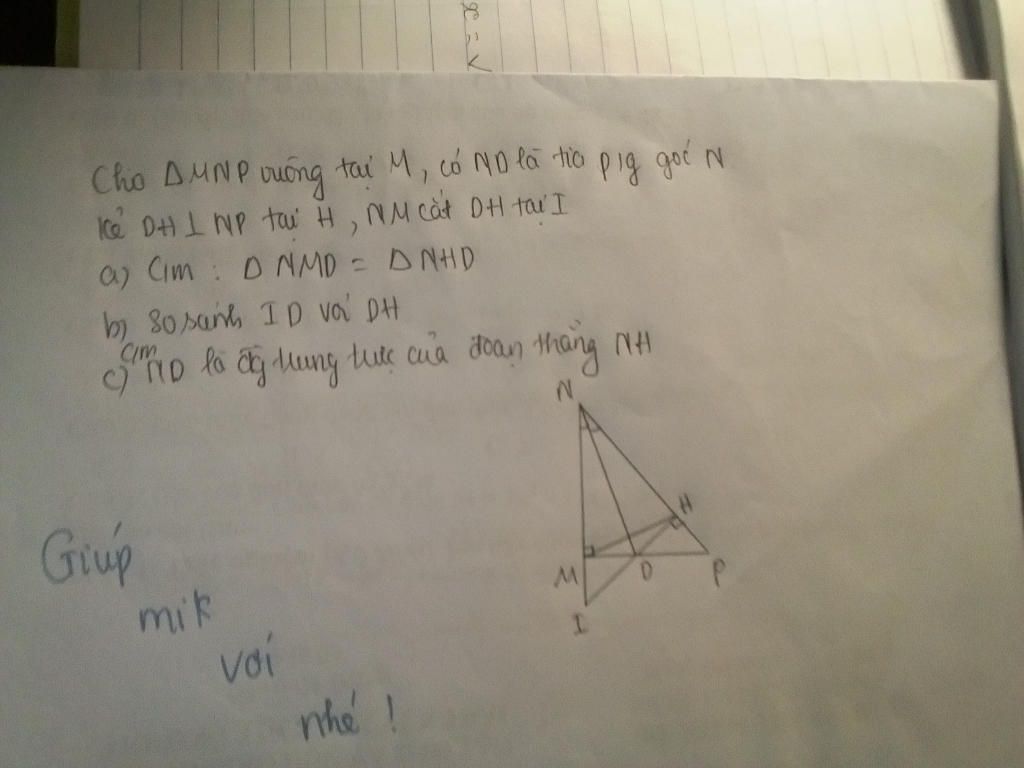 Cho ΔMNP vuông tại M, có ND là tia p/g góc N
Kẻ DH ⊥ NP tại H, NM cắt DH tại I
a) C/m : Δ NMD = Δ NHD
b) So sánh ID với DH
c) C/m ND là đg trung trực của đoạn thẳng NH
N
H
M
D
P
I
Giúp
mik
với
nhé !